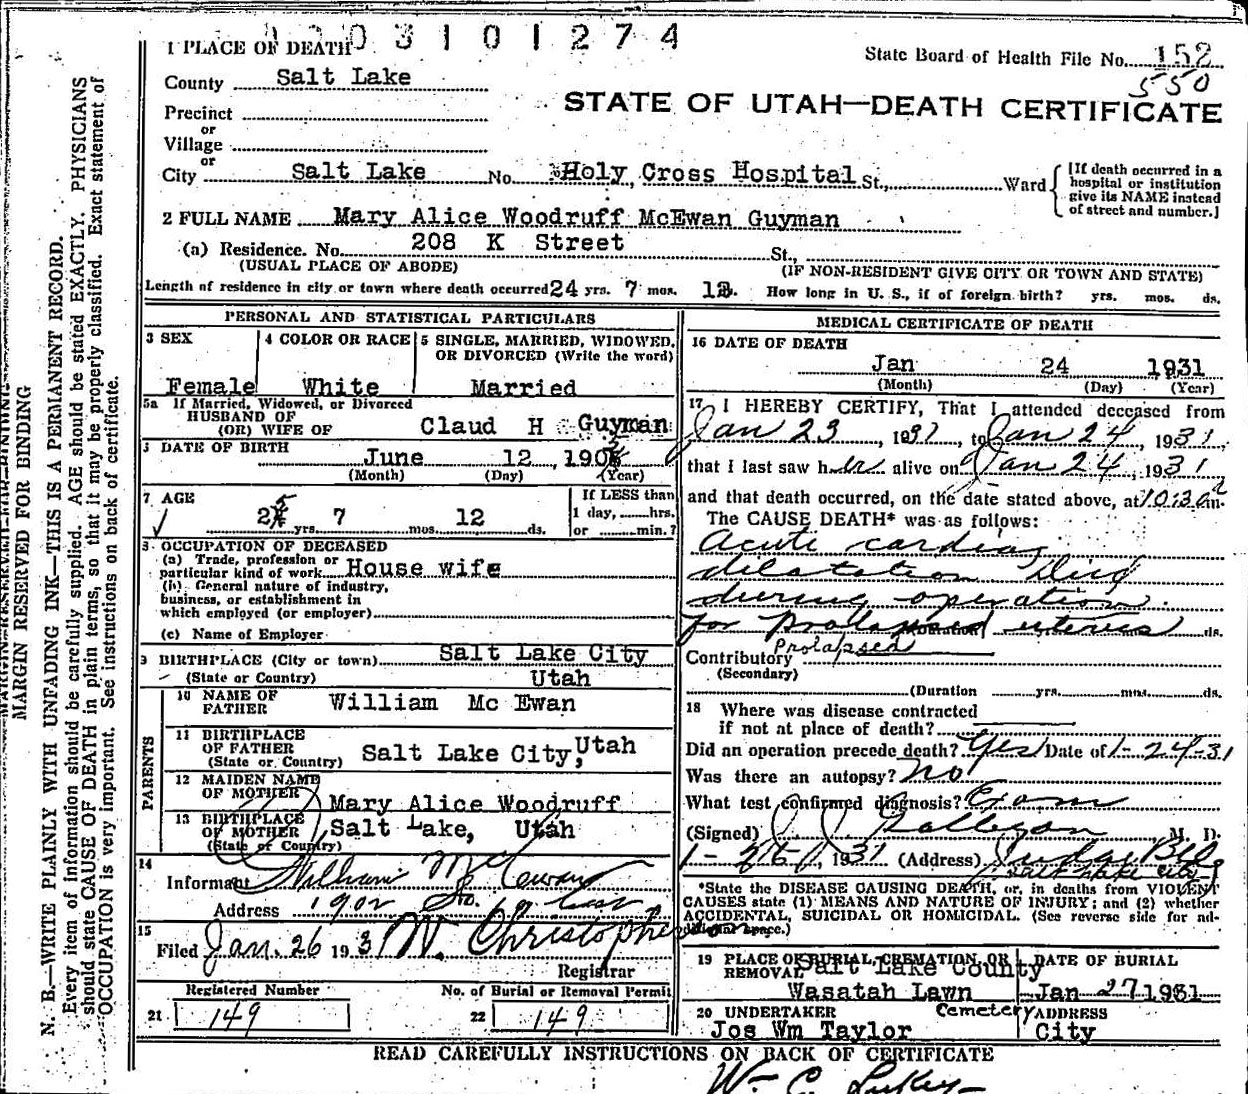 0 3 1 0 1 2 7 4
1 PLACE OF DEATH
State Board of Health File No. 152
550
County Salt Lake
STATE OF UTAH—DEATH CERTIFICATE
Precinct
or
Village
or
City Salt Lake No. Holy Cross Hospital St., Ward
[If death occurred in a
hospital or institution
give its NAME instead
of street and number.]
2 FULL NAME Mary Alice Woodruff McEwan Guyman
(a) Residence. No. 208 K Street St.,
(USUAL PLACE OF ABODE) (IF NON-RESIDENT GIVE CITY OR TOWN AND STATE)
Length of residence in city or town where death occurred 24 yrs. 7 mos. 12. How long in U. S., if of foreign birth? yrs. mos. ds.
PERSONAL AND STATISTICAL PARTICULARS
3 SEX
Female
4 COLOR OR RACE
White
5 SINGLE, MARRIED, WIDOWED,
OR DIVORCED (Write the word)
Married
5a If Married, Widowed, or Divorced
HUSBAND OF
(OR) WIFE OF Claud H Guyman
DATE OF BIRTH
June 12, 190
(Month) (Day) (Year)
7 AGE
5
2 yrs. 7 mos. 12 ds.
If LESS than
1 day, hrs.
or min.?
OCCUPATION OF DECEASED
(a) Trade, profession or
particular kind of work House wife
(b) General nature of industry,
business, or establishment in
which employed (or employer)
(c) Name of Employer
9 BIRTHPLACE (City or town) Salt Lake City
(State or Country) Utah
PARENTS
10 NAME OF
FATHER William Mc Ewan
11 BIRTHPLACE
OF FATHER
(State or Country) Salt Lake City, Utah
12 MAIDEN NAME
OF MOTHER Mary Alice Woodruff
13 BIRTHPLACE
OF MOTHER
(State or Country) Salt Lake, Utah
14
Informant William McEwan
Address 1902 So.
15
Filed Jan. 26 1931 W. Christopherson
Registrar
Registered Number
21 149
No. of Burial or Removal Permit
22 149
MEDICAL CERTIFICATE OF DEATH
16 DATE OF DEATH
Jan 24 1931
(Month) (Day) (Year)
17 I HEREBY CERTIFY, That I attended deceased from
Jan 23, 1931, to Jan 24, 1931
that I last saw her alive on Jan 24, 1931
and that death occurred, on the date stated above, at 1030a m.
The CAUSE DEATH* was as follows:
Acute cardiac
dilatation Died
during operation
for Prolapsed uterus ds.
Prolapsed
Contributory
(Secondary)
(Duration yrs. mos. ds.
18 Where was disease contracted
if not at place of death?
Did an operation precede death? Yes Date of 1-24-31
Was there an autopsy? no
What test confirmed diagnosis? Exam
(Signed) J J Galligan M. D.
1-26, 1931 (Address) Judge Bldg
Salt Lake City
*State the DISEASE CAUSING DEATH, or, in deaths from VIOLENT
CAUSES state (1) MEANS AND NATURE OF INJURY; and (2) whether
ACCIDENTAL, SUICIDAL OR HOMICIDAL. (See reverse side for ad-
ditional space.)
19 PLACE OF BURIAL, CREMATION, OR
REMOVAL Salt Lake County
Wasatah Lawn
Cemetery
DATE OF BURIAL
Jan 27 1931
20 UNDERTAKER
Jos Wm Taylor
ADDRESS
City
READ CAREFULLY INSTRUCTIONS ON BACK OF CERTIFICATE
MARGIN RESERVED FOR BINDING
N. B.—WRITE PLAINLY WITH UNFADING INK—THIS IS A PERMANENT RECORD.
Every item of information should be carefully supplied. AGE should be stated EXACTLY. PHYSICIANS
should state CAUSE OF DEATH in plain terms, so that it may be properly classified. Exact statement of
OCCUPATION is very important. See instructions on back of certificate.